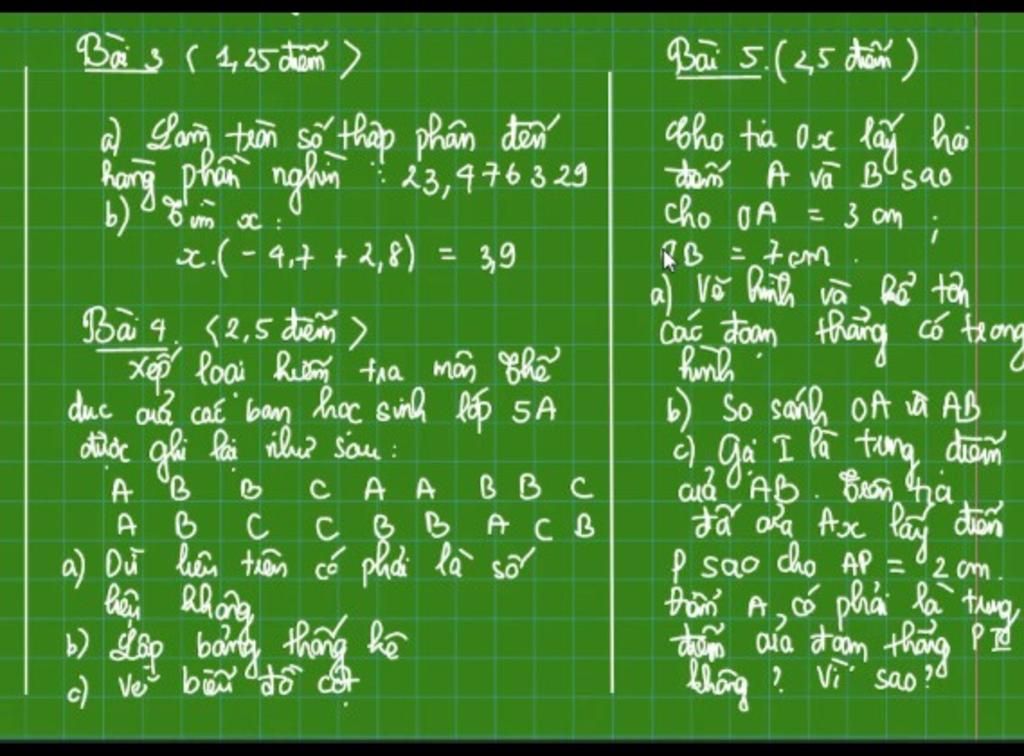 Bài 3 (1,25 điểm)
a) Làm tròn số thập phân đến
hàng phần nghìn : 23,476329
b) Tìm x :
x.(-4,7 + 2,8) = 3,9
Bài 4. (2,5 điểm)
Xếp loại kiểm tra môn thể
dục của các bạn học sinh lớp 5A
được ghi lại như sau :
A B B C A A B B C
A B C C B B A C B
a) Dữ liệu trên có phải là số
liệu không
b) Lập bảng thống kê
c) Vẽ biểu đồ cột.
Bài 5. (2,5 điểm)
Cho tia Ox lấy hai
điểm A và B sao
cho OA = 3 cm ;
OB = 7 cm .
a) Vẽ hình và kể tên
các đoạn thẳng có trong
hình .
b) So sánh OA và AB
c) Gọi I là trung điểm
của AB . Trên tia
đối của Ax lấy điểm
P sao cho AP = 2 cm.
Điểm A có phải là trung
điểm của đoạn thẳng PI
không ? Vì sao ?